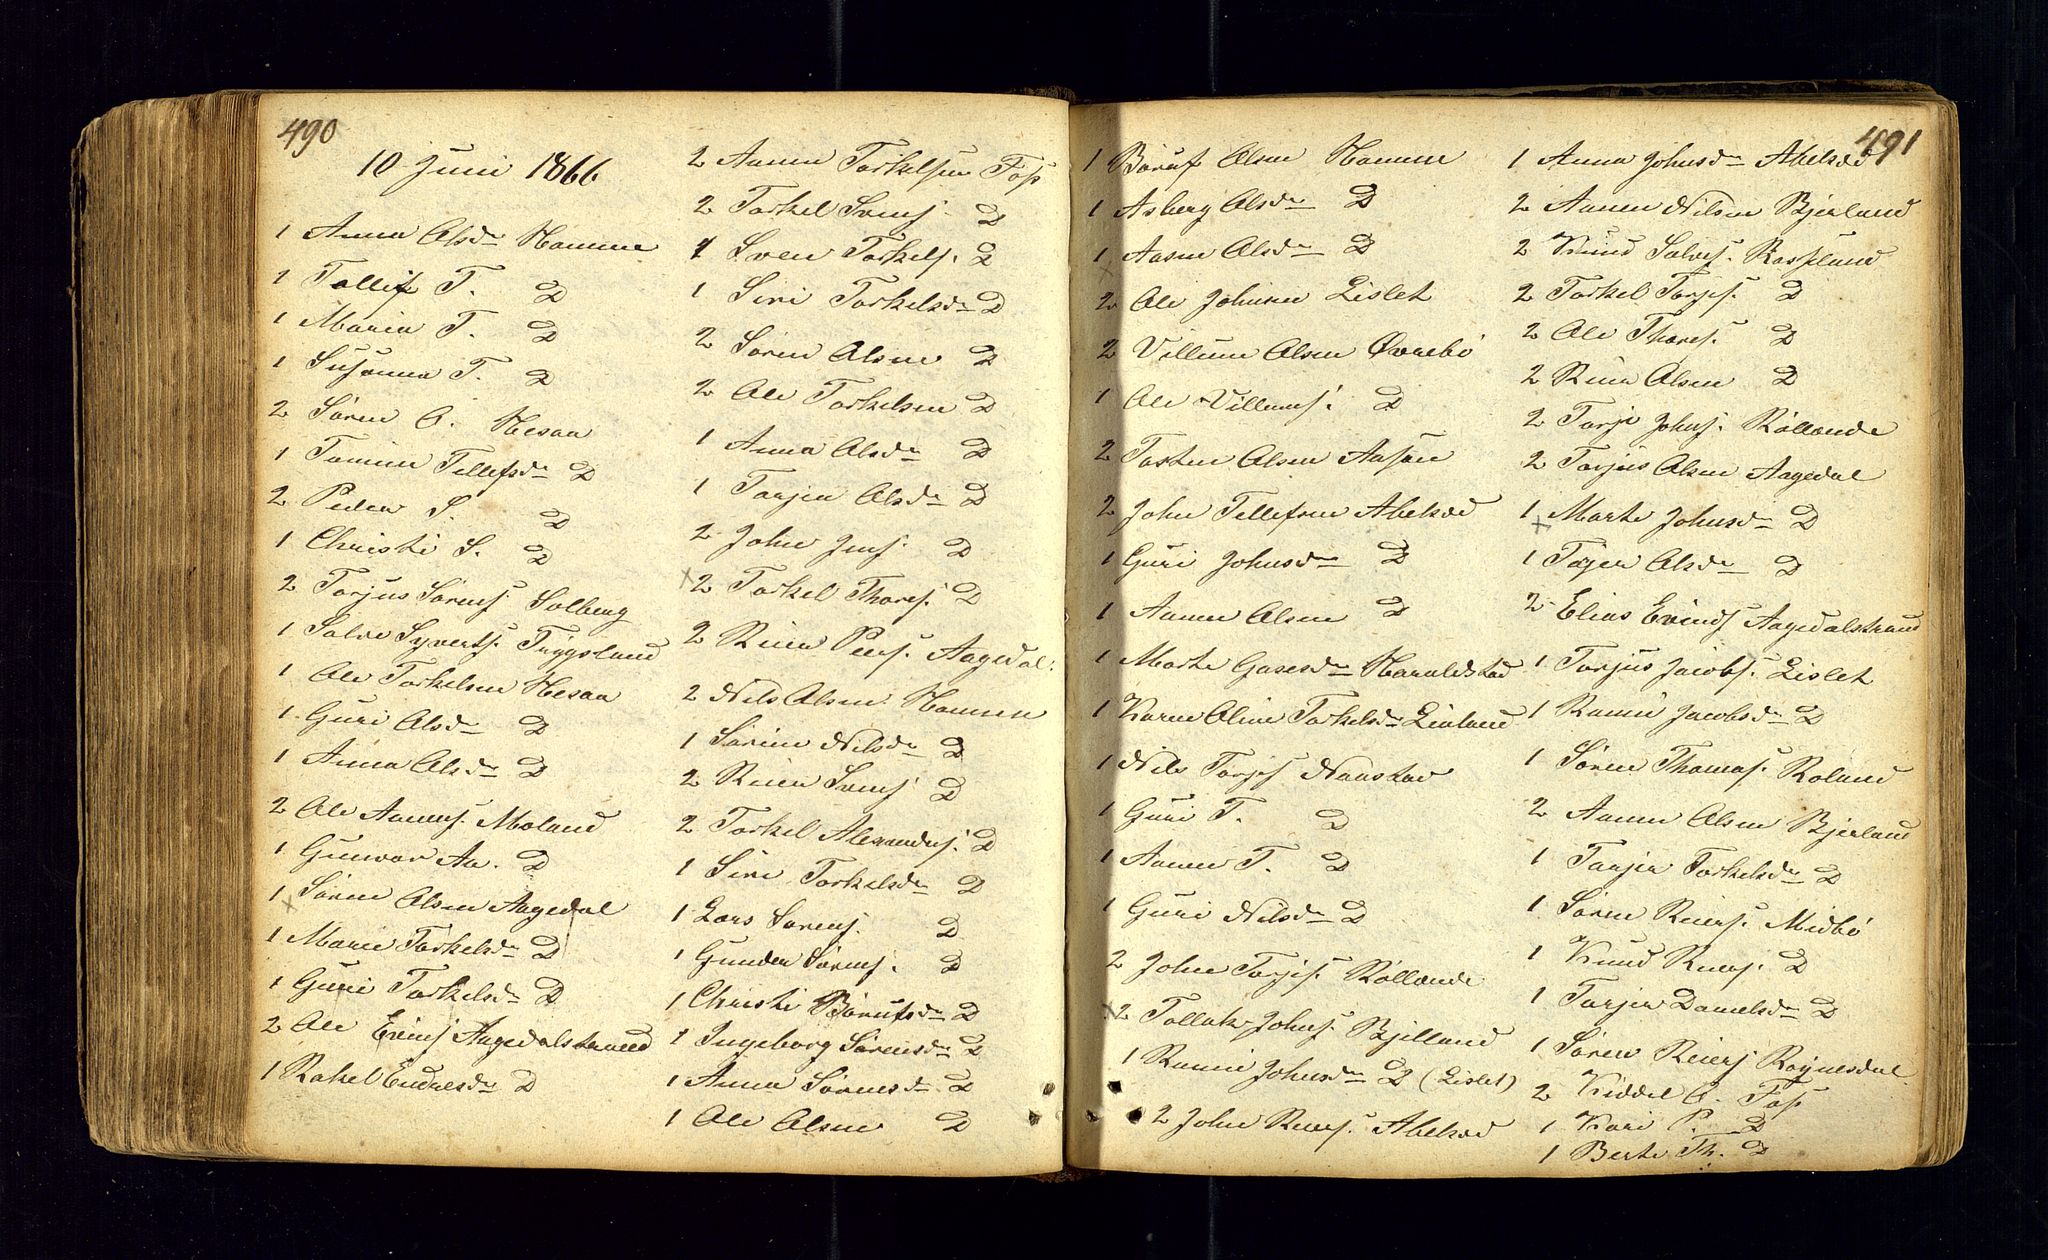 490
10 Juni 1866
1 Anna Olsdr Homme
1 Tollif T. D
1 Maria T. D
1 Susanna T. D
2 Søren O. Hesaa
1 Tomine Tellefsdr D
2 Peder S. D
1 Christi S. D
2 Torjus Sørens. Solberg
1 Salve Syverts. Tryggsland
1 Ole Torkelsen Hesaa
1 Guri Olsdr D
1 Anna Olsdr D
2 Ole Aanens. Moland
1 Gunvor Aa. D
1 Søren Olsen Aagedal
1 Maren Torkelsdr D
1 Guri Torkelsdr D
2 Ole Evens Aagedalstrand
1 Rakel Endresdr D
2 Aanen Torkelsen Fos
2 Torkel Svens. D
1 Sven Torkels. D
1 Siri Torkelsdr D
2 Søren Olsen D
2 Ole Torkelsen D
1 Anna Olsdr D
1 Torjer Olsdr D
2 John Jens. D
2 Torkel Thores. D
2 Reier Peers. Aagedal
2 Nils Olsen Hommen
1 Sørine Nilsdr D
2 Reier Svens D
2 Torkel Alexanders. D
1 Siri Torkelsdr D
1 Lars Sørens. D
1 Gunder Sørens. D
1 Christi Børufsdr D
1 Ingeborg Sørensdr D
1 Anna Sørensdr D
1 Ole Olsen D
491
1 Børuf Olsen Homme
1 Asberg Olsdr D
1 Aasne Olsdr D
2 Ole Johnsen Lislet
2 Villum Olsen Øvrebø
1 Ole Villums. D
2 Tosten Olsen Aasen
2 John Tellefsen Abelsed
1 Guri Johnsdr D
1 Aanen Olsen D
1 Marte Gasesdr Haraldstad
1 Karen Oline Torkelsdr Lieland
1 Nils Torjs Naustad
1 Guri T. D
1 Aanen T. D
1 Guri Nilsdr D
2 John Torjis. Røllende
2 Tollak Johns. Bjelland
1 Rannei Johnsdr D (Lislet)
2 John Reiers. Abelsed
1 Anna Johnsdr Abelsed
2 Aanen Nilsen Bjerland
2 Knud Salves. Rossland
2 Torkel Torjes. D
2 Ole Thores. D
2 Reier Olsen D
2 Torje Johns. Røllende
2 Torjus Olsen Aagedal
1 Marte Johnsdr D
1 Tajer Olsdr D
2 Elias Evinds Aagedalstrand
1 Torjus Jacobs. Lislet
1 Rannei Jacobsdr D
1 Søren Thomas. Roland
2 Aanen Olsen Bjerland
1 Torjer Torkelsdr D
1 Søren Reiers. Midbø
1 Knud Reiers. D
1 Torjer Danielsdr D
1 Søren Reiers Røynesdal
2 Kiddel O. Fos
1 Kari P. D
1 Berte Th. D